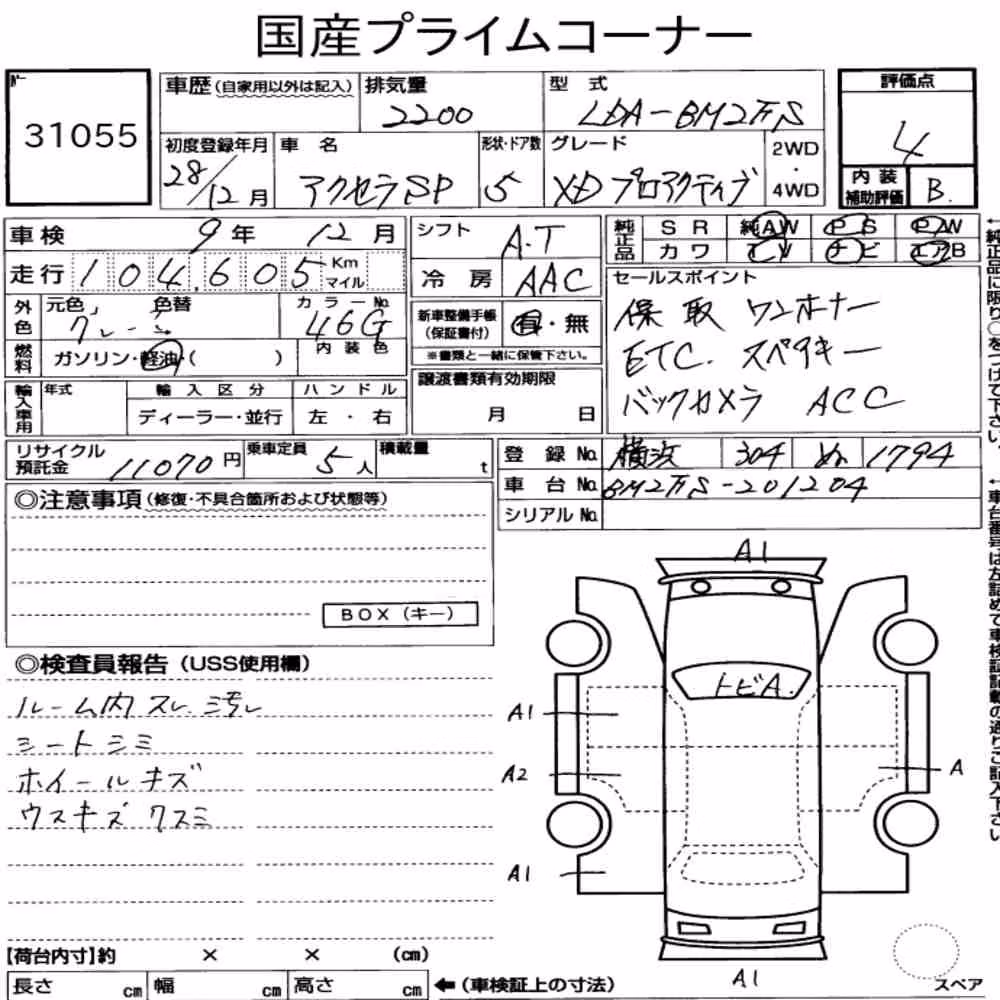 国産プライムコーナー
31055
車歴 (自家用以外は記入) 排気量 2200 型式 LDA-BM2FS 評価点 4
初度登録年月 28/12月 車名 アクセラSP 形状・ドア数 5 グレード XD プロアクティブ 2WD・4WD 内装補助評価 B
車検 9年 12月 シフト A.T 純正品 SR 純AW PS PW
走行 104,605 Km マイル 冷房 AAC カワ TV ナビ エアB
外色 元色 グレー 色替 カラーNo. 46G 新車整備手帳(保証書付) 有・無 セールスポイント
※書類と一緒に保管下さい。
保 取 ワンオーナー
ETC. スペアキー
バックカメラ ACC
燃料 ガソリン・軽油・( ) 内装色
輸入車用 年式 輸入区分 ディーラー・並行 ハンドル 左・右 譲渡書類有効期限 月 日
リサイクル預託金 11070円 乗車定員 5人 積載量 t
登録No. 横浜 304 ぬ 1794
車台No. BM2FS-201204
シリアルNo.
◎注意事項(修復・不具合箇所および状態等)
BOX(キー)
◎検査員報告(USS使用欄)
ルーム内 スレ.汚レ
シートシミ
ホイールキズ
ウスキズ クスミ
A1
トビA.
A1
A2
A
A1
A1
スペア
【荷台内寸】約 × × (cm)
長さ cm 幅 cm 高さ cm ←(車検証上の寸法)
←純正品に限り○をつけて下さい。
←車台番号は左詰めで車検証記載の通りご記入下さい